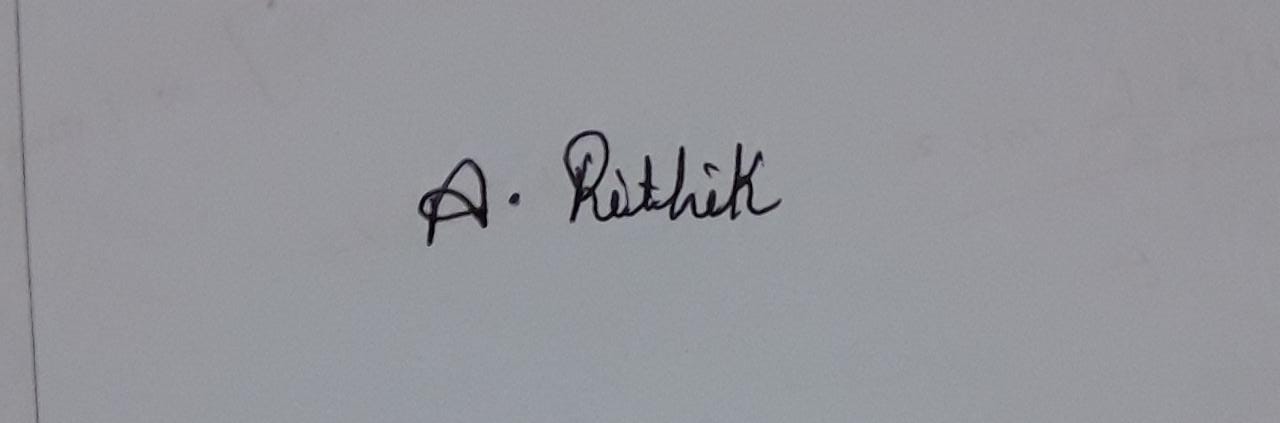 A. Rithik